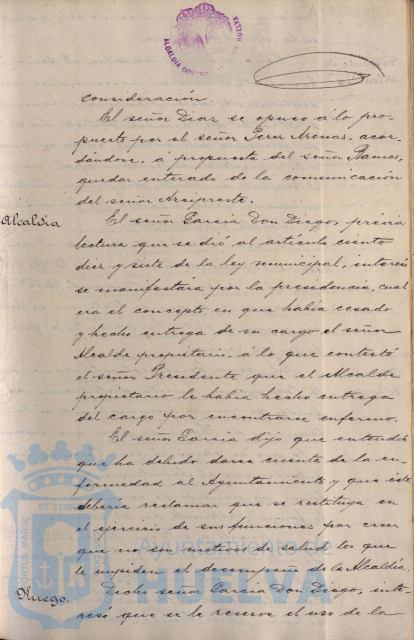 HUELVA
ALCALDIA CONS
consideración.
El señor Diaz se opuso á lo pro-
puesto por el señor Perez Arenas, acor-
dándose, á propuesta del señor Ramos,
quedar enterado de la comunicación
del señor Arcipreste.
Alcaldia
El señor Garcia Don Diego, prévia
lectura que se dió al articulo ciento
diez y siete de la ley municipal, interesó
se manifestara por la presidencia, cual
era el concepto en que habia cesado
y hecho entrega de su cargo el señor
Alcalde propietario, á lo que contestó
el señor Presidente que el Alcalde
propietario le habia hecho entrega
del cargo por encontrarse enfermo.
El señor Garcia dijo que entendia
que ha debido darse cuenta de la en-
fermedad al Ayuntamiento y que éste
deberia reclamar que se restituya en
el ejercicio de sus funciones por creer
que no son motivos de salud los que
le impiden el desempeño de la Alcaldia.
Ruego.
Dicho señor Garcia Don Diego, inte-
resó que se le reserve el uso de la
Ayuntamiento de
HUELVA
PORTUS MARIS
ET TERR